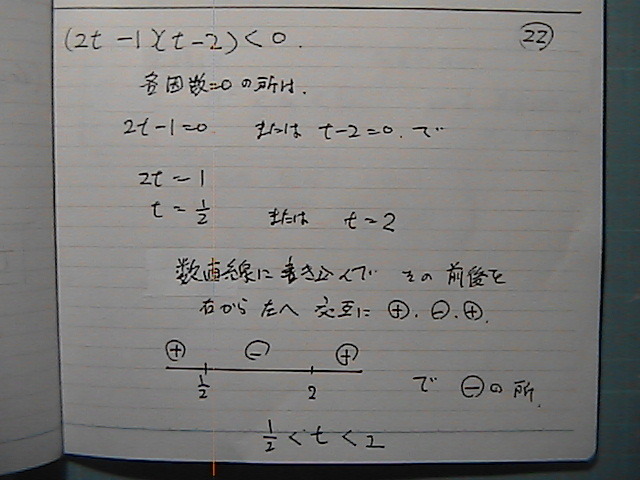 (2t-1)(t-2)<0.
㉒
各因数=0の所は、
2t-1=0 または t-2=0.で
2t=1
t=1/2 または t=2
数直線に書き込んで その前後を
右から左へ 交互に ⊕.⊖.⊕.
⊕ ⊖ ⊕
1/2 2 で ⊖の所.
1/2<t<2